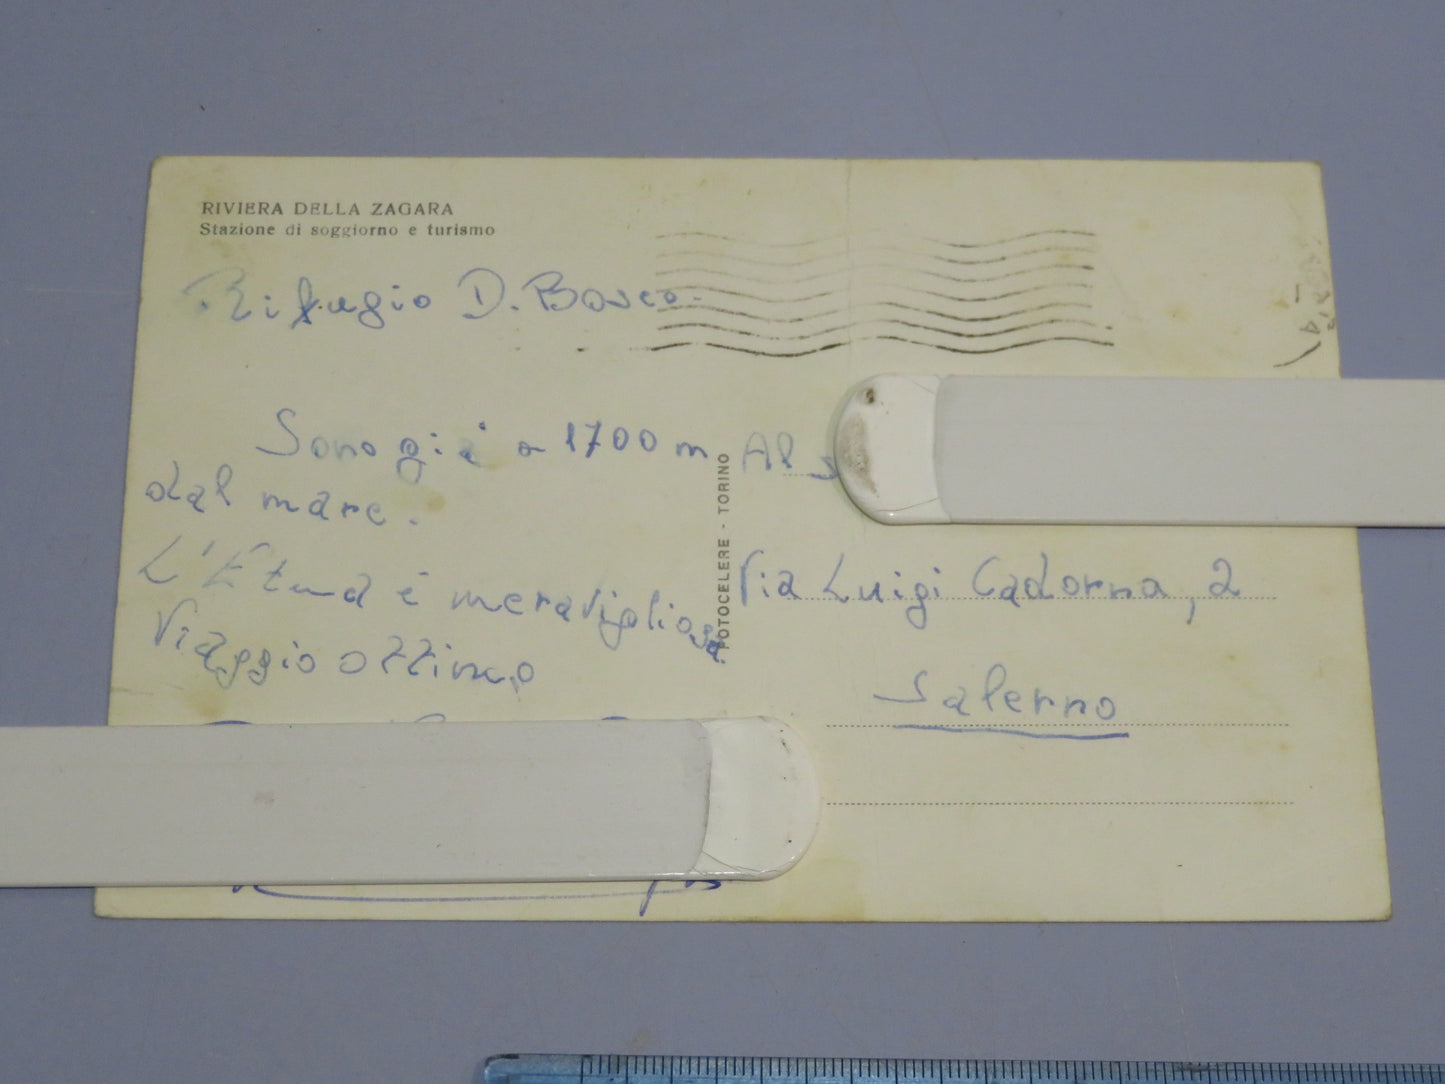 RIVIERA DELLA ZAGARA
Stazione di soggiorno e turismo
Rifugio D. Bosco.
Sono già a 1700 m
dal mare.
L'Etna è meravigliosa
Viaggio ottimo
FOTOCELERE - TORINO
Al
Via Luigi Cadorna, 2
Salerno